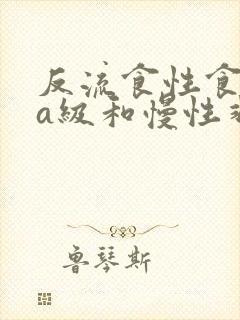 反流食性食
a級和慢性
魯琴斯